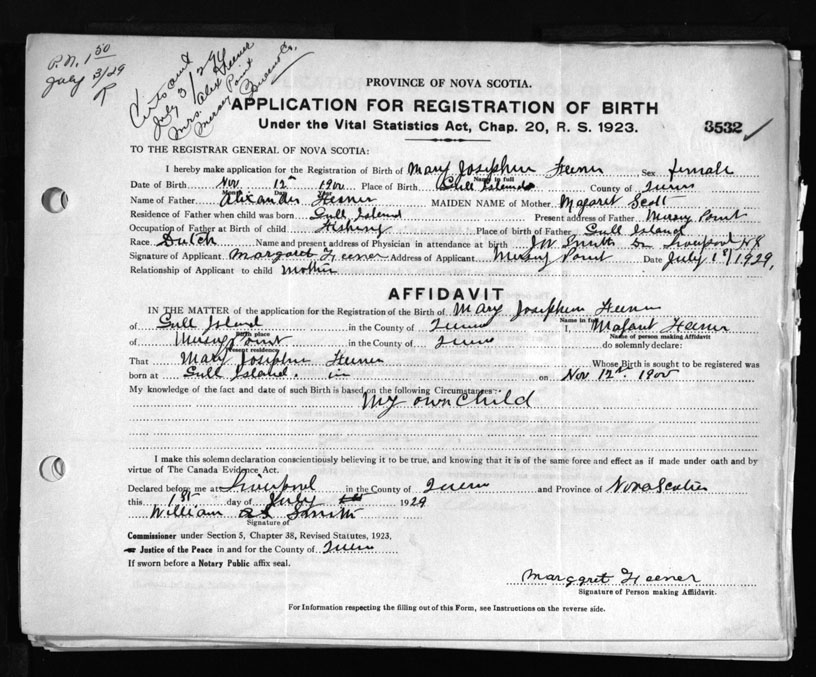 P.N. 1 50
July 3/29
R
Cert sent
July 3/29
Mrs. Alex Heener
Mersey Point
Queens Co.
PROVINCE OF NOVA SCOTIA.
APPLICATION FOR REGISTRATION OF BIRTH
Under the Vital Statistics Act, Chap. 20, R. S. 1923.
3532 ✓
TO THE REGISTRAR GENERAL OF NOVA SCOTIA:
I hereby make application for the Registration of Birth of Mary Josephine Heener Sex female
Name in full
Date of Birth Nov. 12th 1900 Place of Birth Gull Island County of Queens
Month Date Year
Name of Father Alexander Heener MAIDEN NAME of Mother Magaret Scott
Residence of Father when child was born Gull Island Present address of Father Mersey Point
Occupation of Father at Birth of child Fishing Place of birth of Father Gull Island
Race. Dutch Name and present address of Physician in attendance at birth J.W. Smith Dr Liverpool N.S.
Signature of Applicant. Margaret Heener Address of Applicant Mersey Point Date July 1st/1929.
Relationship of Applicant to child mother
AFFIDAVIT
IN THE MATTER of the application for the Registration of the Birth of Mary Josephine Heener
Name in full
of Gull Island in the County of Queens I, Heener
Birth place Name of person making Affidavit
of Mersey Point in the County of Queens do solemnly declare:
Present residence
That Mary Josephine Heener Whose Birth is sought to be registered was
born at Gull Island. in on Nov 12th. 1900
My knowledge of the fact and date of such Birth is based on the following Circumstances:
My own Child
I make this solemn declaration conscientiously believing it to be true, and knowing that it is of the same force and effect as if made under oath and by
virtue of The Canada Evidence Act.
Declared before me at Liverpool in the County of Queens and Province of Nova Scotia
this 1st day of July 1929
William Smith
Signature of
Commissioner under Section 5, Chapter 38, Revised Statutes, 1923.
Justice of the Peace in and for the County of Queens
If sworn before a Notary Public affix seal.
Marggret Heener
Signature of Person making Affidavit.
For Information respecting the filling out of this Form, see Instructions on the reverse side.